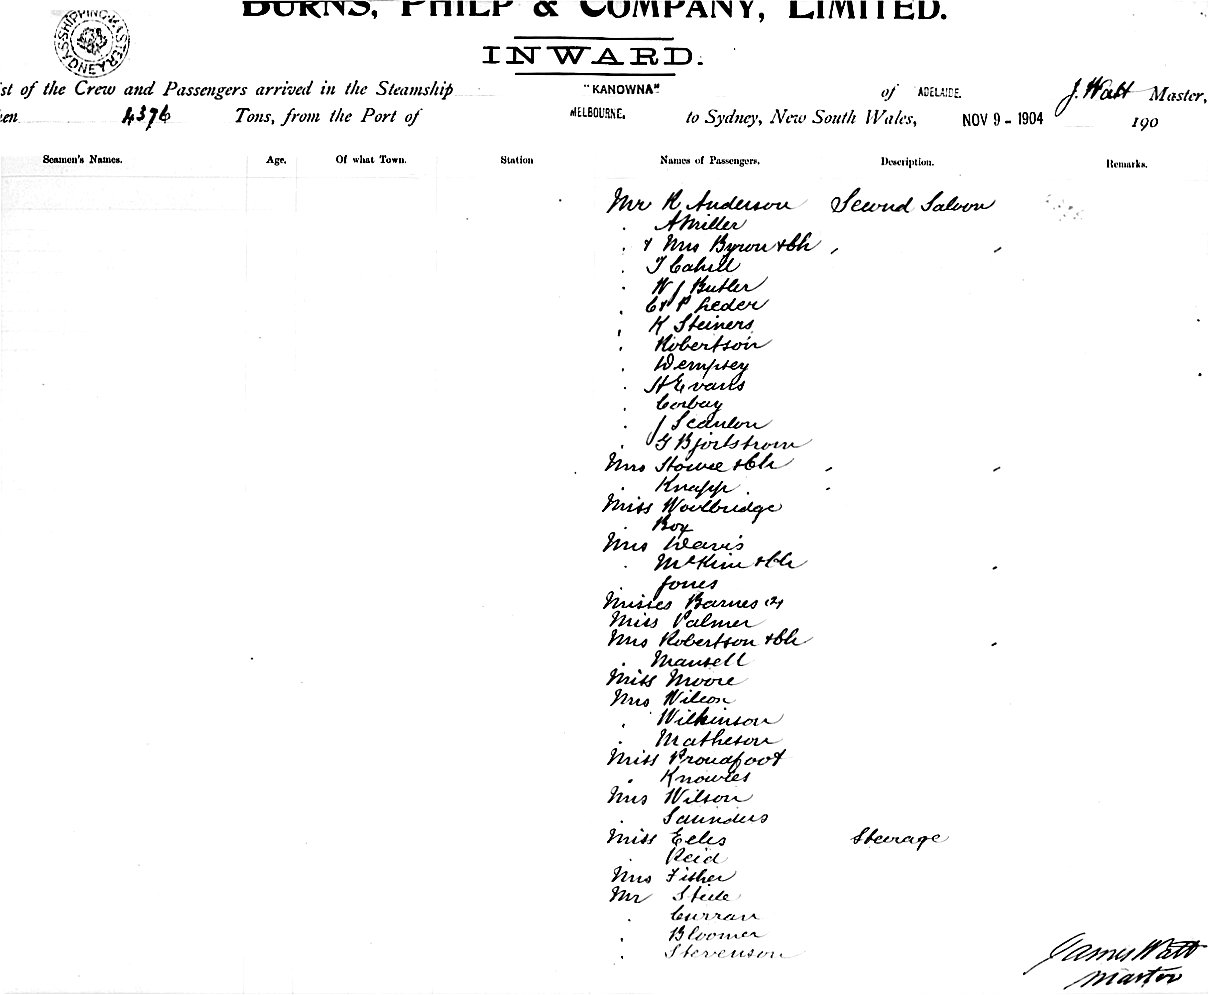 BURNS, PHILP & COMPANY, LIMITED.
INWARD.
SHIPPING MASTER SYDNEY
st of the Crew and Passengers arrived in the Steamship "KANOWNA" of ADELAIDE. J. Watt Master,
en 4376 Tons, from the Port of MELBOURNE. to Sydney, New South Wales, NOV 9 - 1904 190
Seamen's Names. Age. Of what Town. Station Names of Passengers. Description. Remarks.
Mr R Anderson Second Saloon
A Miller
& Mrs Byron & Ch
T Cahill
W J Butler
C & P Leder
K Steiners
Robertson
Dempsey
H Evans
Corbay
J Scanlon
G Bjorlstrom
Mrs Howie & Ch
Knapp
Miss Woolbridge
Roy
Mrs Davis
McKim & Ch
Jones
Misses Barnes (2)
Miss Palmer
Mrs Robertson & Ch
Mansell
Miss Moore
Mrs Wilson
Wilkinson
Matheson
Miss Proudfoot
Knowles
Mrs Wilson
Saunders
Miss Eeles Steerage
Reid
Mrs Fisher
Mr Steele
Curran
Bloomer
Stevenson
James Watt
Master